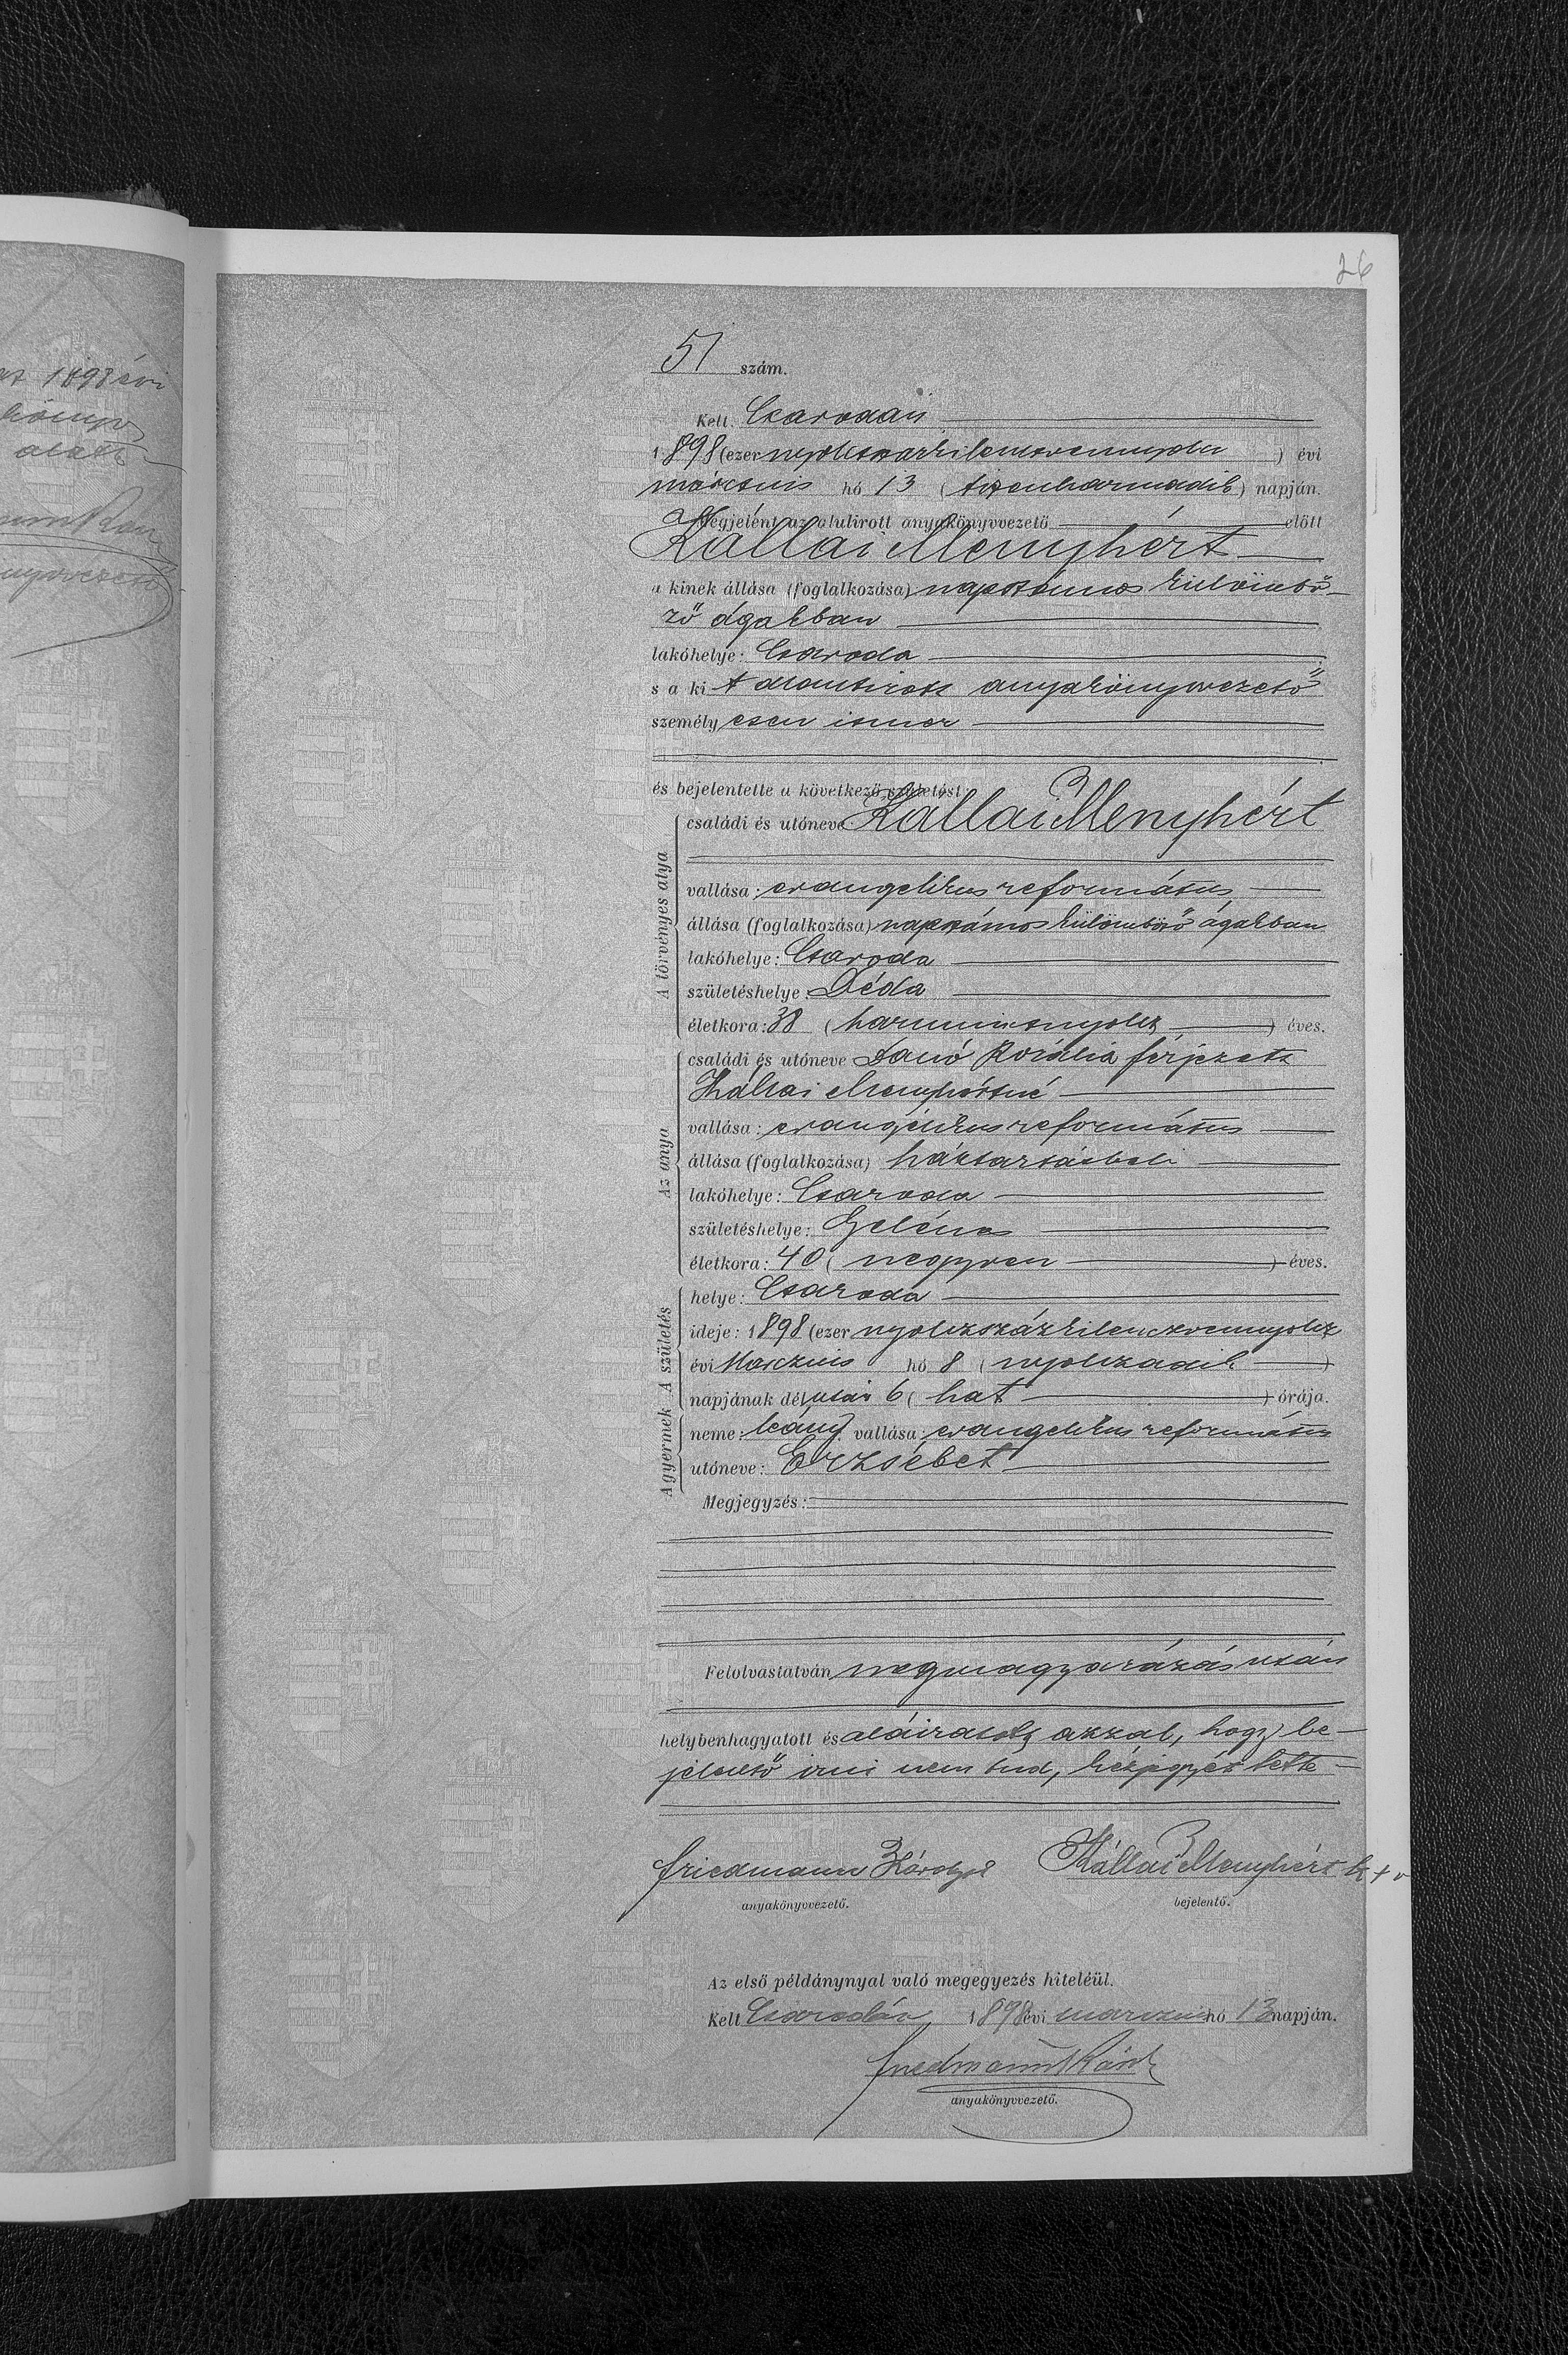 26
at 1898 évi
alatt
51 szám.
Kelt. Csarodán
1898 (ezer nyolczszázkilenczvennyolcz) évi
márczius hó 13 (tizenharmadik) napján.
Megjelent az alulirott anyakönyvvezető előtt
Kállai Menyhért
a kinek állása (foglalkozása) napszámos külömbö-
ző ágakban
lakóhelye: Csaroda
s a kit alantirott anyakönyvvezető
személyesen ismer
és bejelentette a következő születést:
A törvényes atya
családi és utóneve Kállai Menyhért
vallása: evangelikus református
állása (foglalkozása) napszámos külömböző ágakban
lakóhelye: Csaroda
születéshelye: Déda
életkora: 38 (harmincznyolcz) éves.
Az anya
családi és utóneve Rozália férjezett
Kállai Menyhértné
vallása: evangélikus református
állása (foglalkozása) háztartásbeli
lakóhelye: Csaroda
születéshelye: Gelénes
életkora: 40 (negyven) éves.
A születés
helye: Csaroda
ideje: 1898 (ezer nyolczszázkilenczvennyolcz
évi Márczius hó 8 (nyolczadik)
napjának délután 6 (hat) órája.
A gyermek
neme: leány vallása: evangelikus református
utóneve: Erzsébet
Megjegyzés:
Felolvastatván, megmagyarázás után
helybenhagyatott és aláiratott azzal, hogy be-
jelentő irni nem tud, kézjegyét tette
Friedmann Károly Kállai Menyhért k + v
anyakönyvvezető. bejelentő.
Az első példánynyal való megegyezés hiteléül.
Kelt Csarodán, 1898 évi marczius hó 13 napján.
Friedmann Károly
anyakönyvvezető.